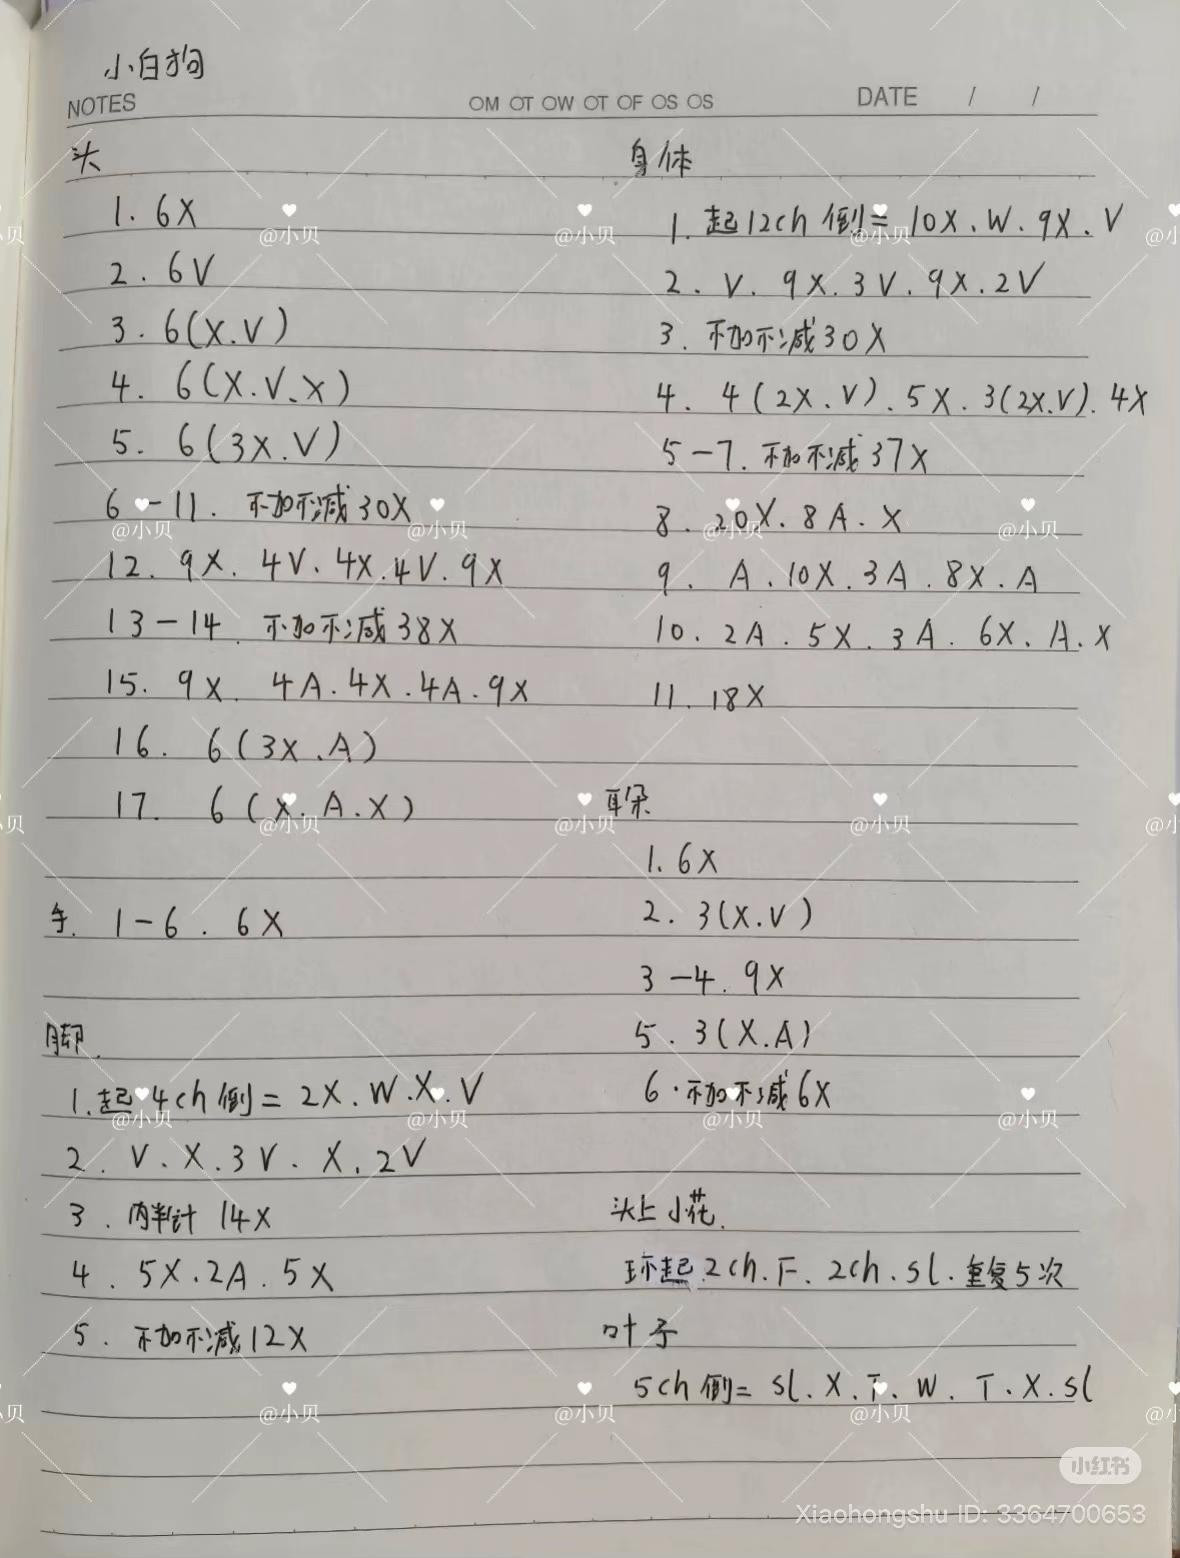 小白狗
NOTES
OM OT OW OT OF OS OS
DATE / /
头
1. 6X
2. 6V
3. 6(X.V)
4. 6(X.V.X)
5. 6(3X.V)
6-11. 不加不减30X
12. 9X. 4V. 4X. 4V. 9X
13-14. 不加不减38X
15. 9X. 4A. 4X. 4A. 9X
16. 6(3X.A)
17. 6(X.A.X)
手. 1-6. 6X
脚.
1. 起4ch 倒二 2X. W. X. V
2. V. X. 3V. X. 2V
3. 内半针 14X
4. 5X. 2A. 5X
5. 不加不减12X
身体
1. 起12ch 倒二 10X. W. 9X. V
2. V. 9X. 3V. 9X. 2V
3. 不加不减30X
4. 4(2X.V). 5X. 3(2X.V). 4X
5-7. 不加不减37X
8. 20X. 8A. X
9. A. 10X. 3A. 8X. A
10. 2A. 5X. 3A. 6X. A. X
11. 18X
耳朵
1. 6X
2. 3(X.V)
3-4. 9X
5. 3(X.A)
6. 不加不减6X
头上小花.
环起 2ch. F. 2ch. sl. 重复5次
叶子
5ch 倒二 sl. X. T. W. T. X. sl
@小贝
小红书
Xiaohongshu ID: 3364700653